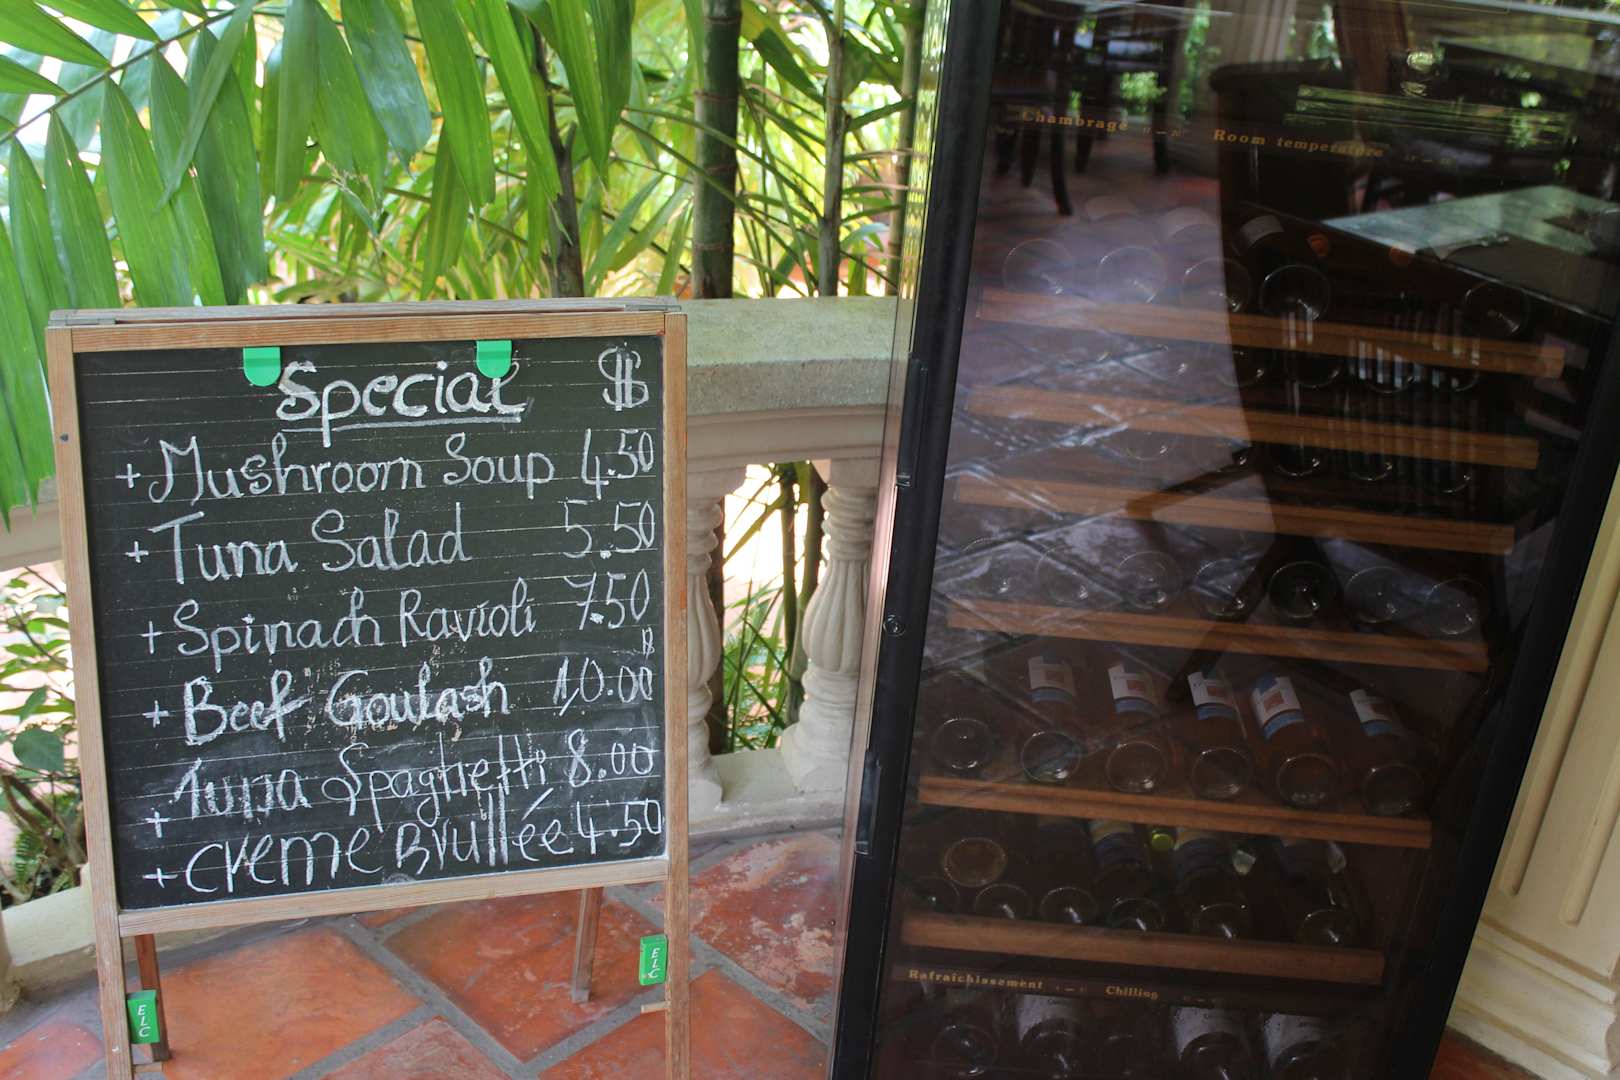 Special $
+ Mushroom Soup 4.50
+ Tuna Salad 5.50
+ Spinach Ravioli 7.50
+ Beef Goulash 10.00
+ Tuna Spaghetti 8.00
+ creme Brullée 4.50
ELC
ELC
Chambrage
Room temperature
Rafraichissement
Chilling